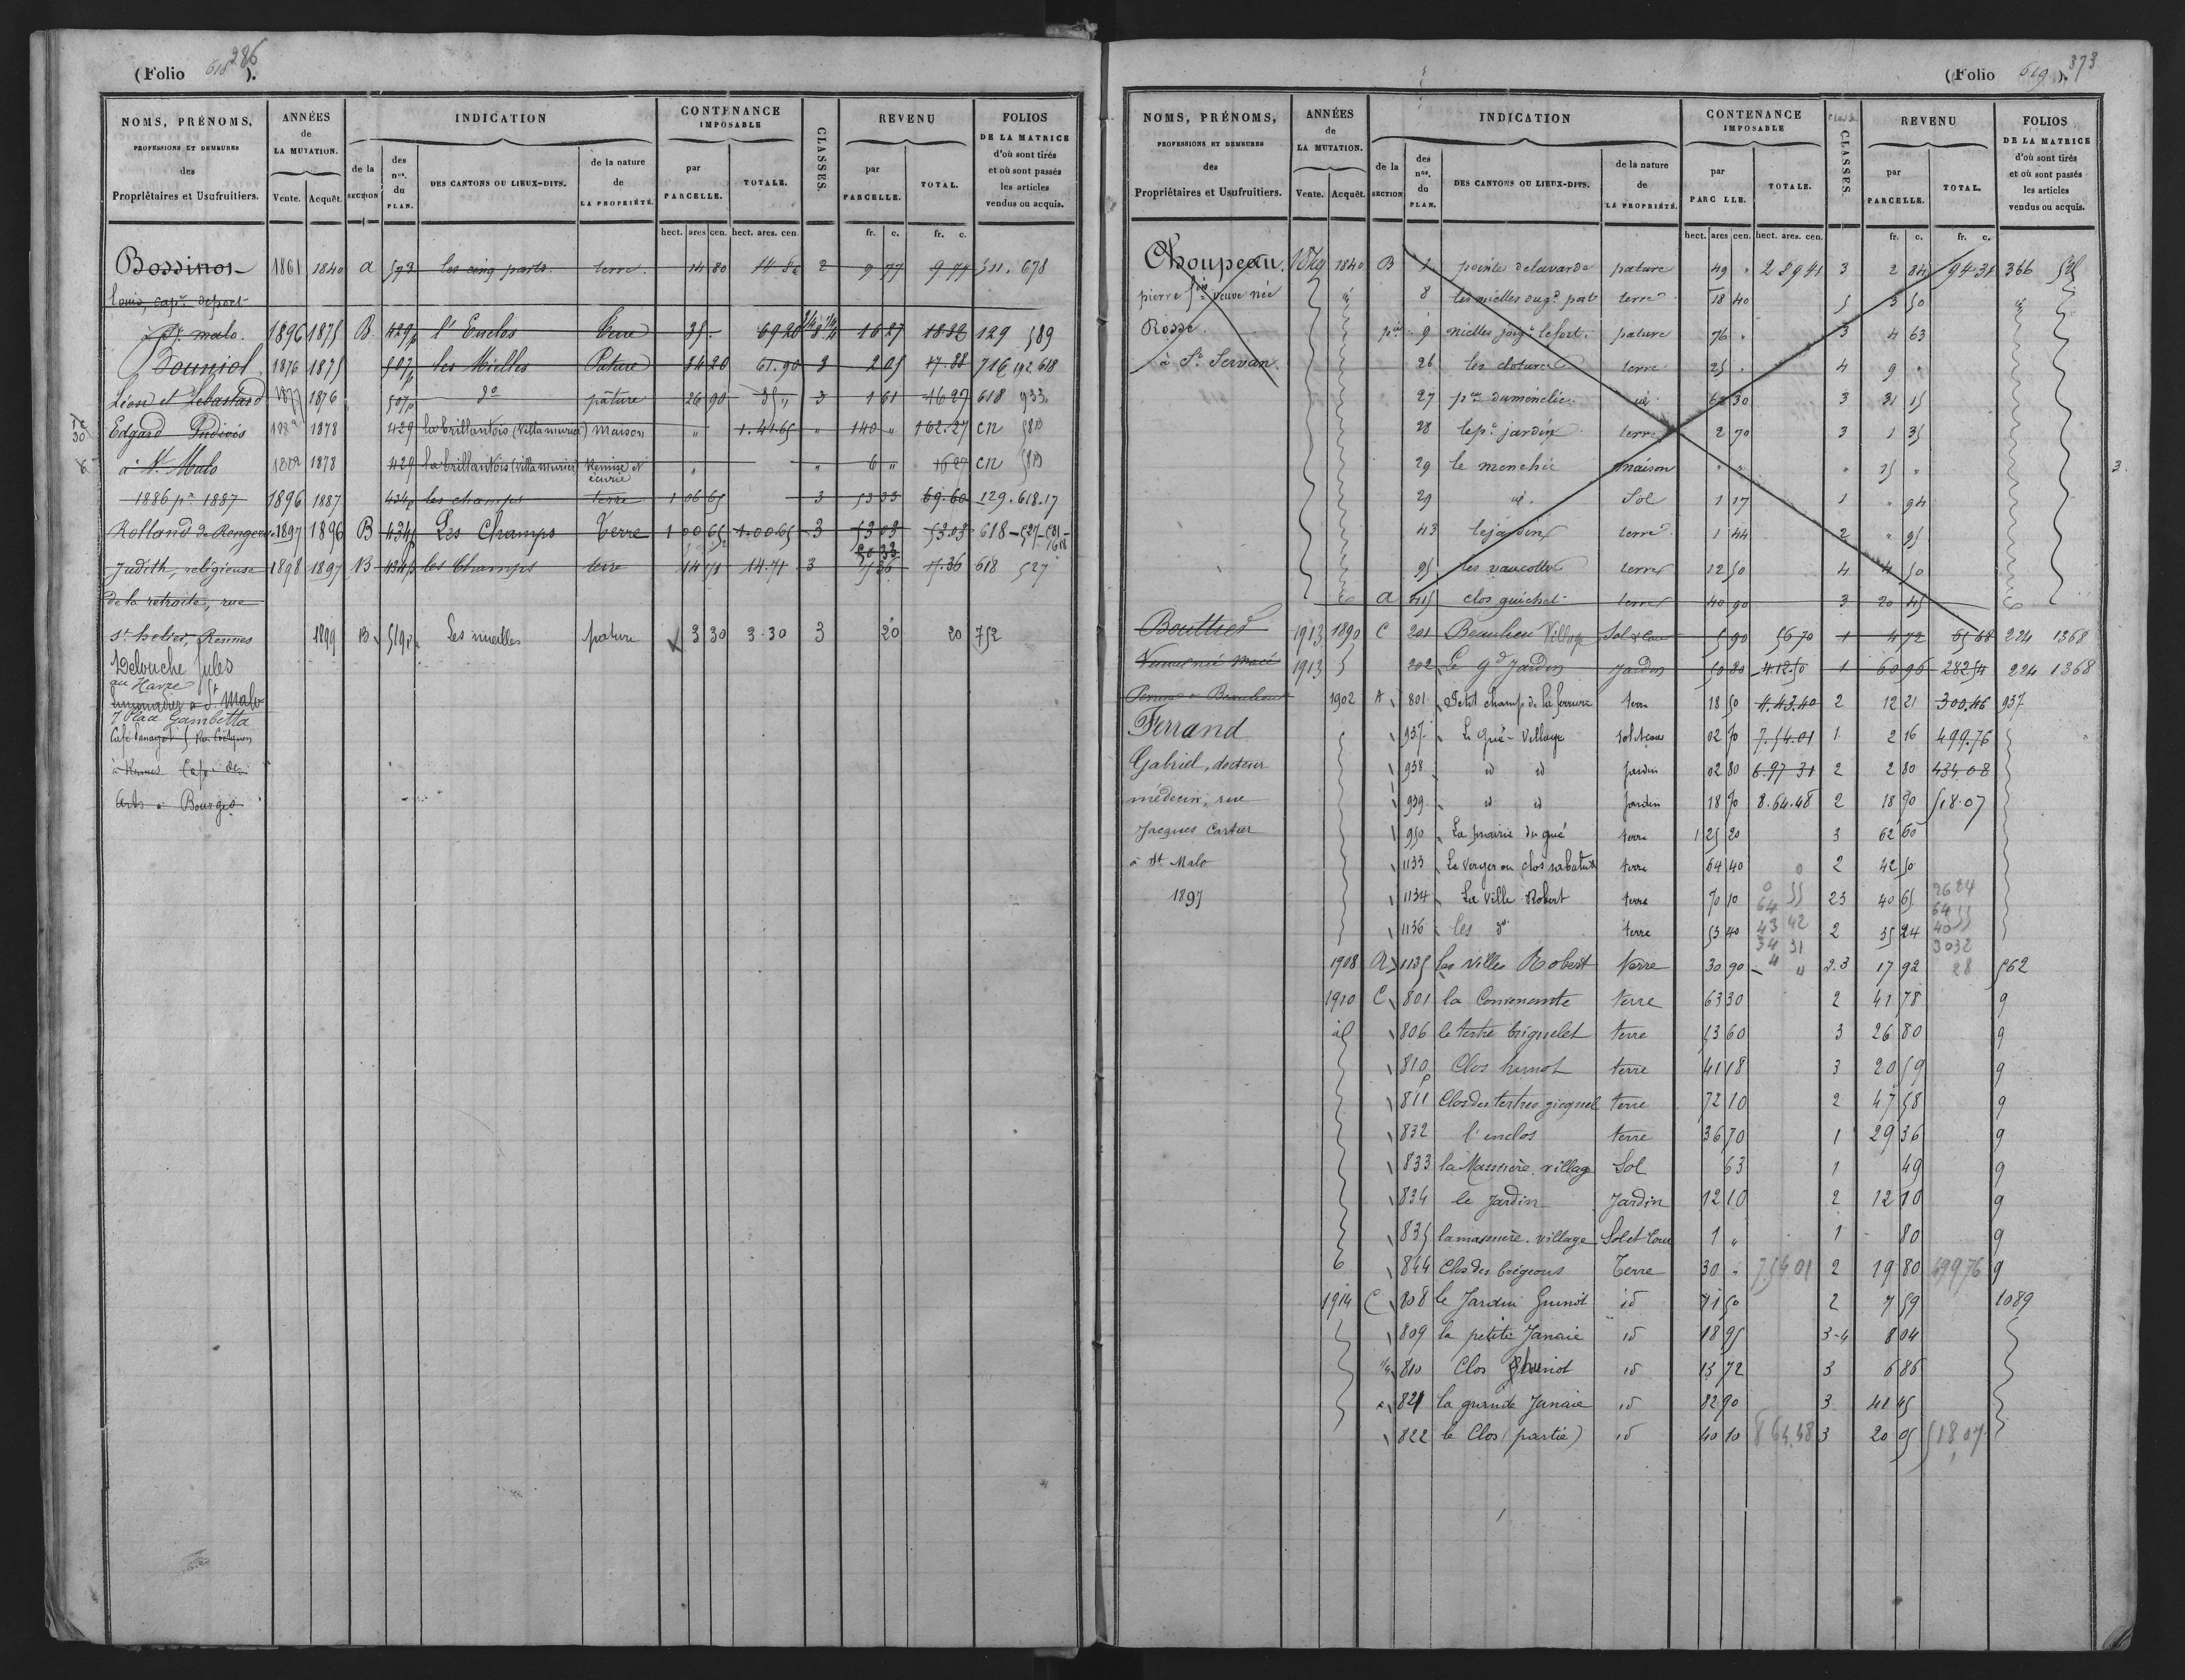 (Folio 618 286).
NOMS, PRÉNOMS, PROFESSIONS ET DEMEURES des Propriétaires et Usufruitiers. ANNÉES de LA MUTATION. Vente. Acquêt. INDICATION de la SECTION des nos. du PLAN. DES CANTONS OU LIEUX-DITS. de la nature de LA PROPRIÉTÉ. CONTENANCE IMPOSABLE par PARCELLE. TOTALE. CLASSES. REVENU par PARCELLE. TOTAL. FOLIOS DE LA MATRICE d'où sont tirés et où sont passés les articles vendus ou acquis.
hect. ares cen. hect. ares. cen. fr. c. fr. c.
Bossinot 1861 1840 a 573 les cinq parts terre 14 80 14 80 2 9 77 9 77 511. 678
Louis, cape. de port
à St. malo. 1896 1875 B. 429p l'Enclos Terre 35 - 69 20 16 27 18 32 129 589
Bouniol 1876 1875 507p les Mielles Pature 34 20 61.90 3 2 05 17.88 716 192 618
Léon et Lebastard 1877 1876 507p do pâture 26 90 35 " 3 1 61 16 27 618 933
Edgard 1878 429 la brillantois (Villa muriel) Maison " 1.41.65 " 140 " 162.27 cn
à St. Malo 1878 429 la brillantois (Villa muriel) Remise et écurie " " 6 " 16 27 cn
1886 pr 1887 1896 1887 434p les champs terre 1 06 65 3 53 33 69.60 129.618.17
Rolland de Rengervé 1897 1896 B 434p Les Champs Terre 1 00 65 1.00 65 3 53 03 53.03 618-527-531-
Judith, religieuse 1898 1897 B 434p les Champs terre 14 71 14.71 3 7 36 7.36 618 527
de la retraite, rue
St helier, Rennes 1899 B 519p Les mielles pature 3 30 3.30 3 20 20 752
Delouche Jules
au Havre
limonadier à St. Malo
7 Place Gambetta
à Rennes Café des
Arts à Bourges
(Folio 619). 373
NOMS, PRÉNOMS, PROFESSIONS ET DEMEURES des Propriétaires et Usufruitiers. ANNÉES de LA MUTATION. Vente. Acquêt. INDICATION de la SECTION des nos. du PLAN. DES CANTONS OU LIEUX-DITS. de la nature de LA PROPRIÉTÉ. CONTENANCE IMPOSABLE par PARC LLE. TOTALE. CLASSES. REVENU par PARCELLE. TOTAL. FOLIOS DE LA MATRICE d'où sont tirés et où sont passés les articles vendus ou acquis.
hect. ares cen. hect. ares. cen. fr. c. fr. c.
Choupeau 1840 B 1 pointe delavarde pature 49 " 2 89 41 3 2 84 94 31 366
pierre veuve née 8 les mielles terre 18 40 5 3 50
Rosse. 9 mielles lefort. pature 76 " 3 4 63
à St. Servan. 26 les clotures terre 25 " 4 9 "
27 id 62 30 3 31 15
28 le pt. jardin terre 2 70 3 1 35
29 le monchic maison " " " 25 "
29 id. Sol 1 17 1 " 94
43 lejardin terre 1 44 2 " 95
95 les vaucottes terre 12 50 4 4 50
a 415 clos guichet terre 40 90 3 20 45
Bouttier 1913 1890 C 201 Beaulieu Village Sol & Cour 5 90 56 70 1 4 72 65 68 224 1368
Veuve née Macé 1913 202 Le gd Jardin Jardin 50 80 4.12 50 1 60 96 282 54 224 1368
Perrine à Beaulieu 1902 A 801 Petit champ de la ferrure terre 18 50 4.43.40 2 12 21 300.46 937
Ferrand 937 Le Gué - Village sol et cour 02 70 7.54.01 1 2 16 499.76
Gabriel, docteur 938 id id jardin 02 80 6.97 31 2 2 80 434.08
médecin, rue 939 id id jardin 18 70 8.64.48 2 18 70 518.07
Jacques Cartier 950 La prairie du gué terre 1 25 20 3 62 60
à St Malo 1133 Le Verger ou clos rabatu terre 64 40 2 42 50
1897 1134 La Ville Robert terre 70 10 23 40 65
1136 les do terre 53 40 2 35 24
1908 A 1135 Les Villes Robert Terre 30 90 2.3 17 92 562
1910 C 801 la Convenante terre 63 30 2 41 78 9
id 806 le tertre brignelet terre 53 60 3 26 80 9
810 p Clos hunot terre 41 18 3 20 59 9
811 Clos des tertres gicquel terre 72 10 2 47 58 9
832 l'enclos terre 36 70 1 29 36 9
833 la Massuère. village Sol 63 1 49 9
834 le Jardin Jardin 12 10 2 12 10 9
835 la massuère. village Sol et Cour 1 " 1 80 9
844 Clos des brégeons Terre 30 " 7 54 01 2 19 80 499 76 9
1914 C 808 le Jardin Gunot id 11 50 2 7 59 1089
809 la petite Janaie id 18 95 3-4 8 04
810 Clos hunot id 13 72 3 6 86
821 la grande Janaie id 82 90 3 41 45
822 le Clos (partie) id 40 10 8 64.48 3 20 05 518.07